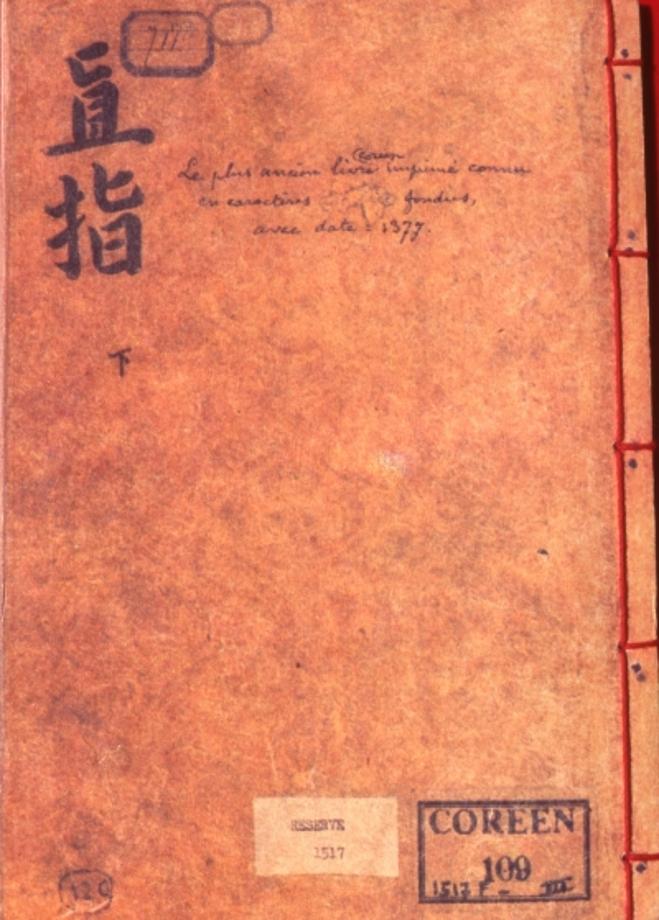 直指
下
Coréen
Le plus ancien livre imprimé connu
en caractères fondus,
avec date = 1377.
RESERVE
1517
COREEN
109
1517 F - III